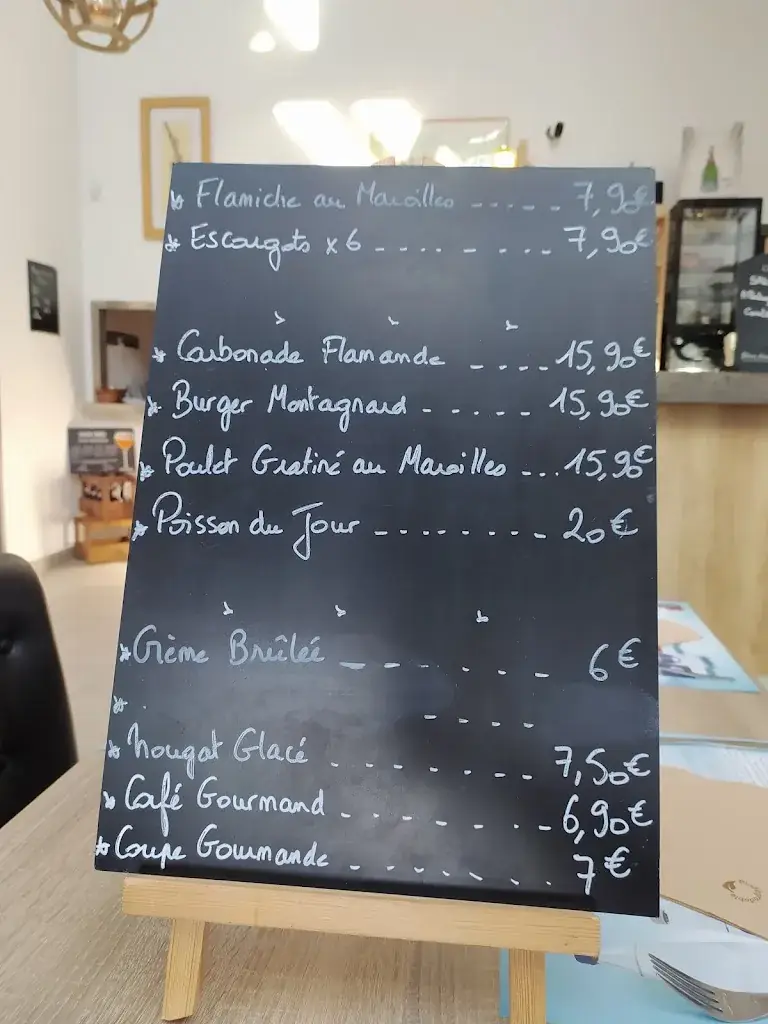 * Flamiche au Maroilles ------ 7,90€
* Escargots x6 -------- 7,90€
* Carbonade Flamande ---- 15,90€
* Burger Montagnard ----- 15,90€
* Poulet Gratiné au Maroilles ... 15,90€
* Poisson du Jour -------- 20€
* Crème Brûlée ------ 6€
* . ----
* Nougat Glacé ------- 7,50€
* Café Gourmand ------ 6,90€
* Coupe Gourmande ------ 7€